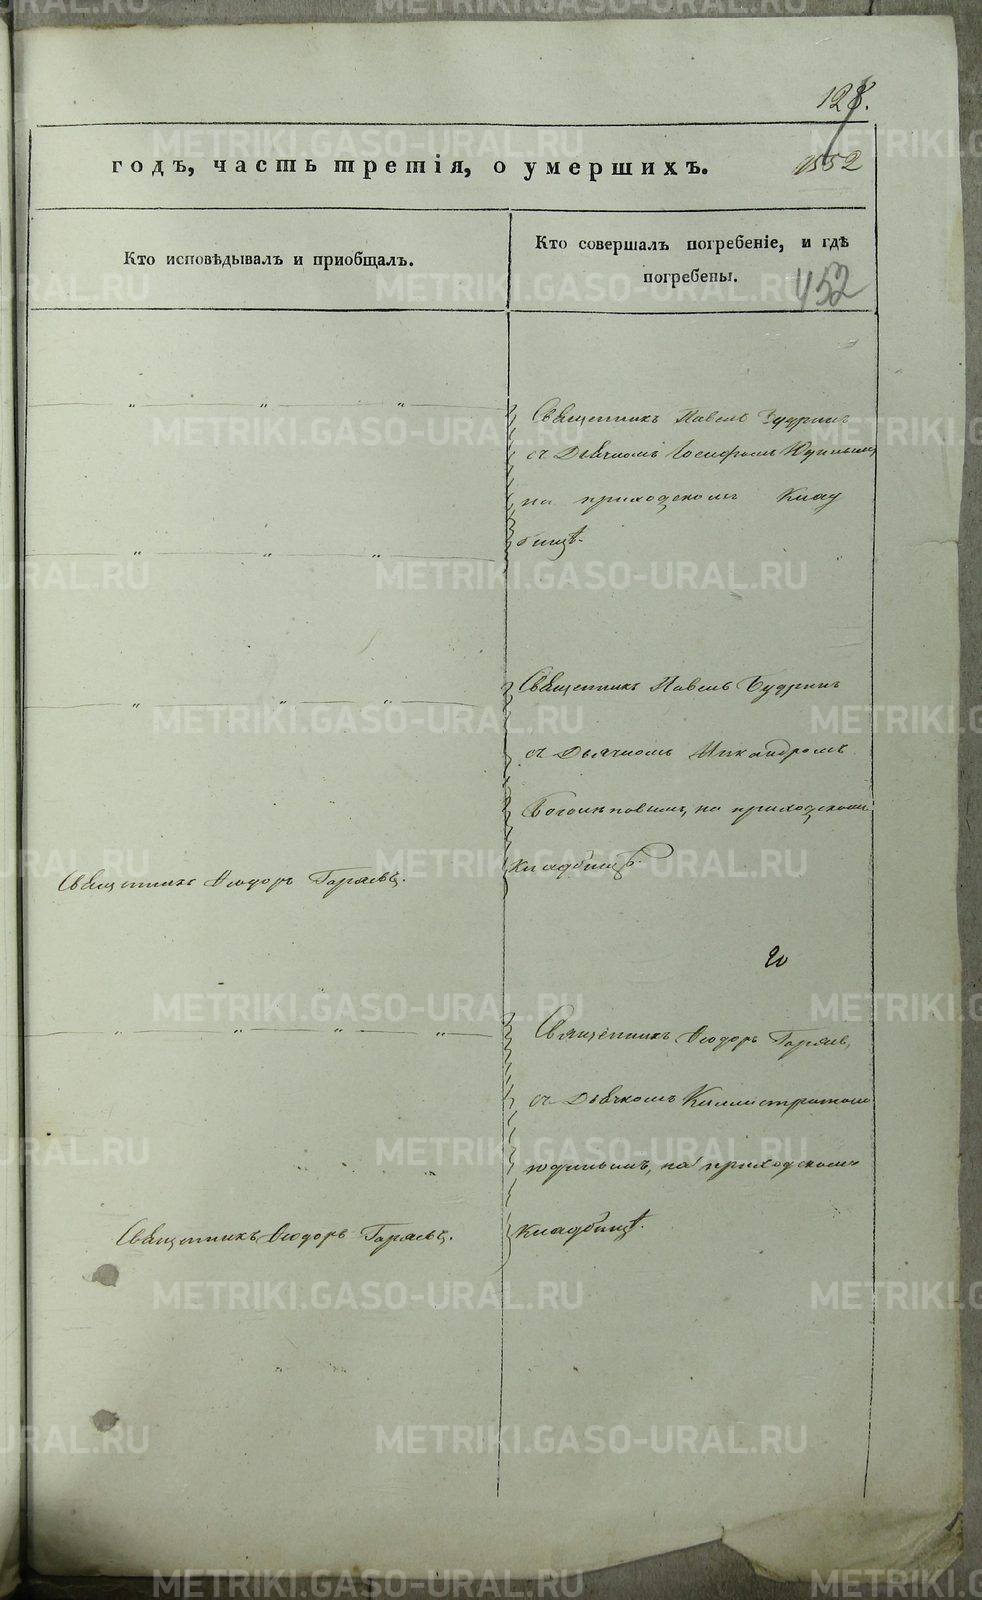 128.
годъ, часть третія, о умершихъ.
1552
Кто исповѣдывалъ и пріобщалъ.
Кто совершалъ погребеніе, и гдѣ
погребены.
452
Священникъ Павелъ
съ Дьячкомъ Іосифомъ
на приходскомъ Клад
бищѣ.
Священникъ Павелъ Будринъ
съ Дьячкомъ Никандромъ
на приходскомъ
кладбищѣ.
Священникъ Ѳеодоръ Горяевъ.
Священникъ Ѳеодоръ Горяевъ,
съ Дьячкомъ Каллистратомъ
Юдинымъ, на приходскомъ
кладбищѣ.
Священникъ Ѳеодоръ Горяевъ.
METRIKI.GASO-URAL.RU